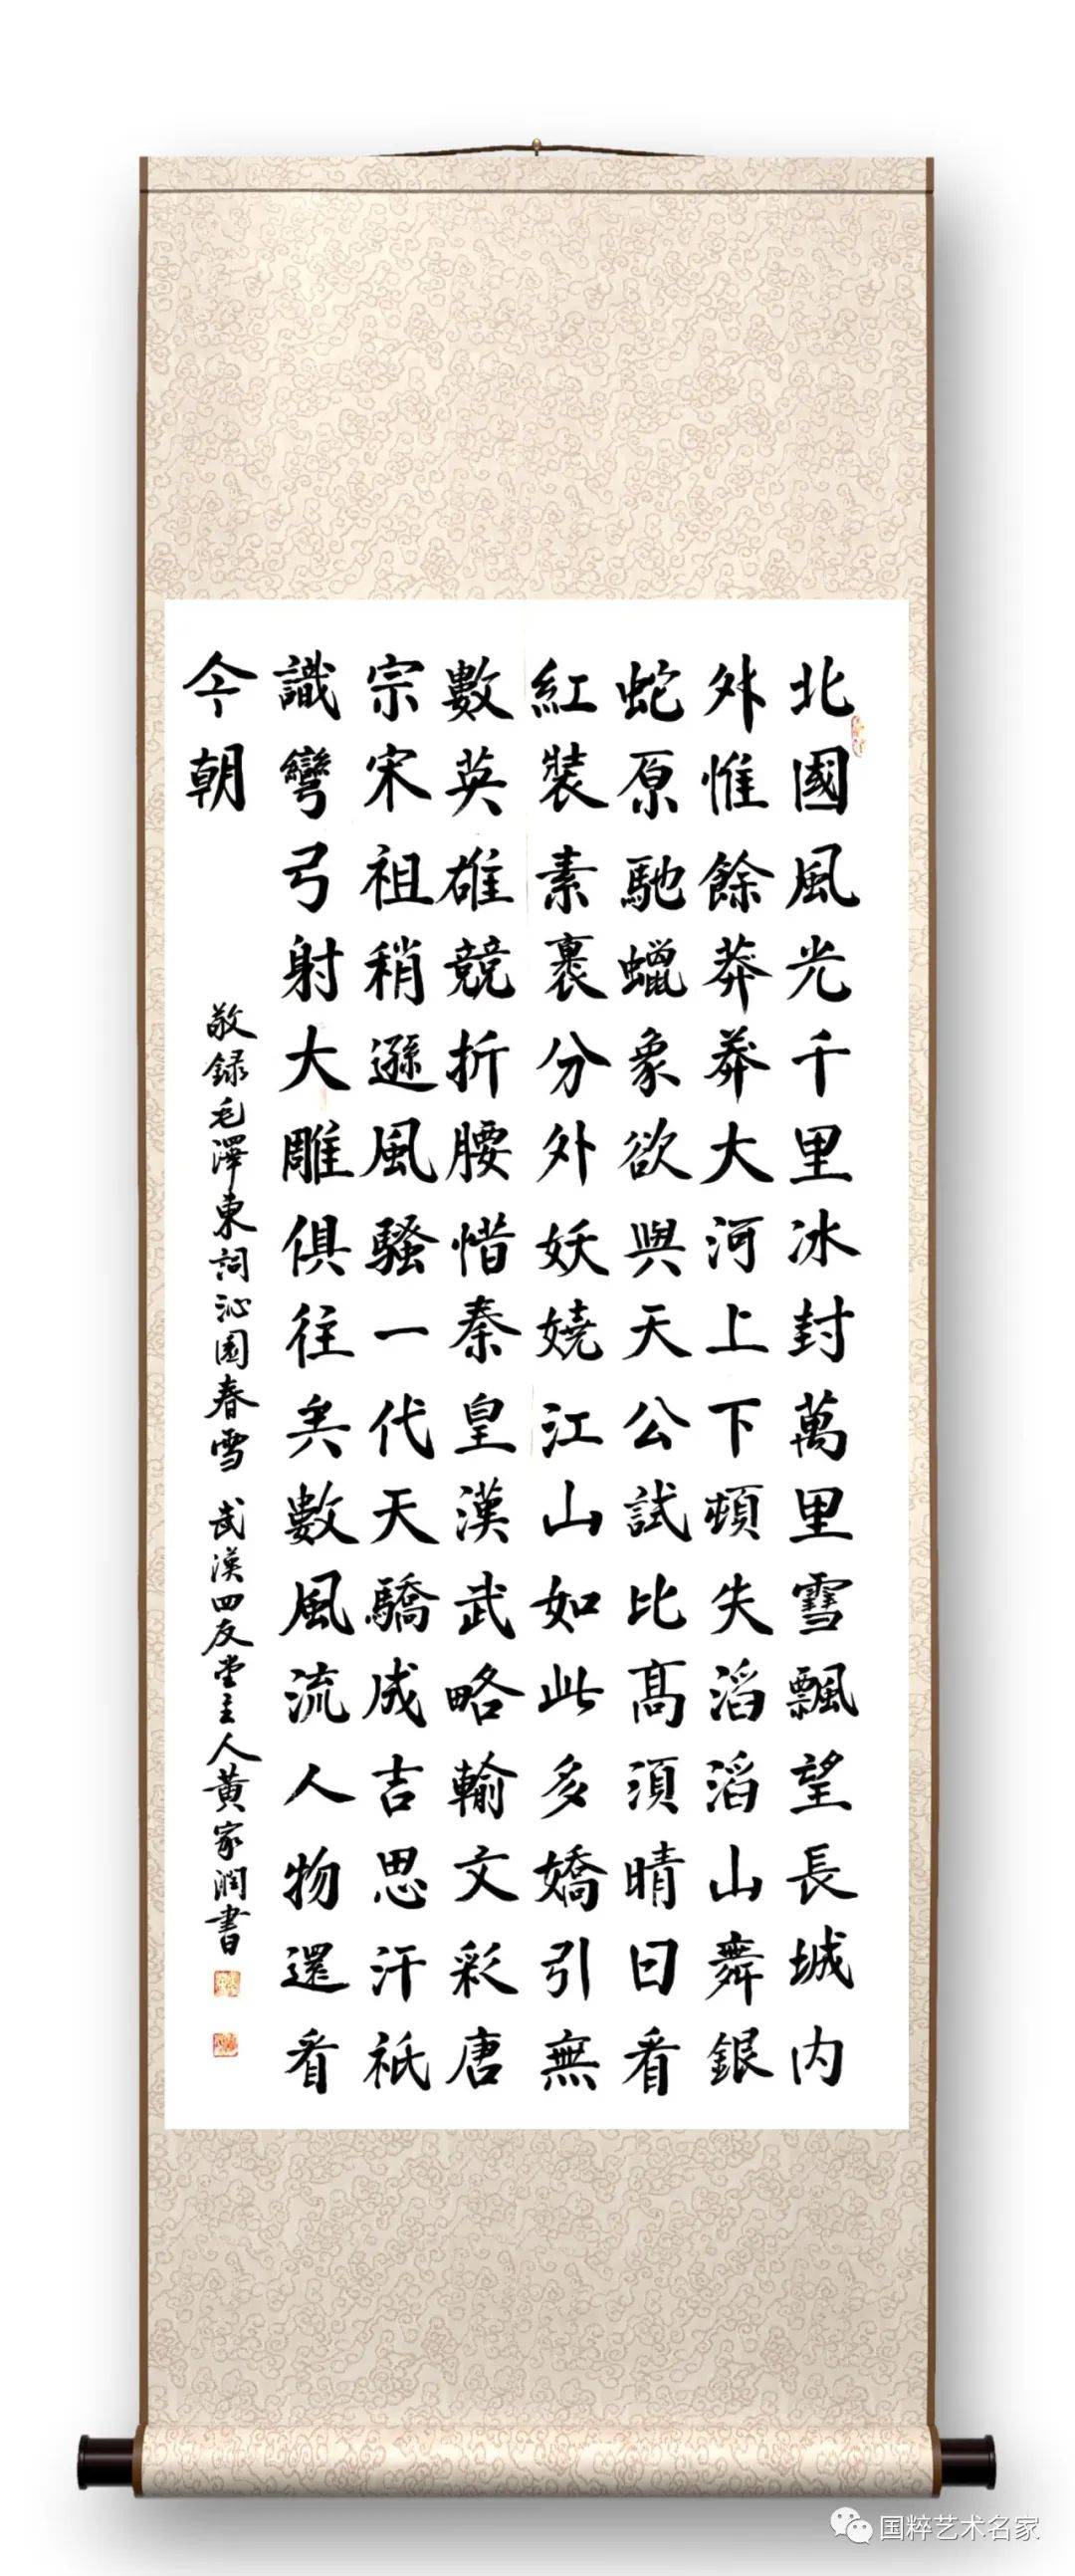 北國風光千里冰封萬里雪飄望長城内
外惟餘莽莽大河上下頓失滔滔山舞銀
蛇原馳蠟象欲與天公試比高須晴日看
紅裝素裹分外妖嬈江山如此多嬌引無
數英雄競折腰惜秦皇漢武略輸文彩唐
宗宋祖稍遜風騷一代天驕成吉思汗祇
識彎弓射大雕俱往矣數風流人物還看
今朝
敬録毛澤東詞沁園春雪 武漢四友堂主人黄家潤書
国粹艺术名家